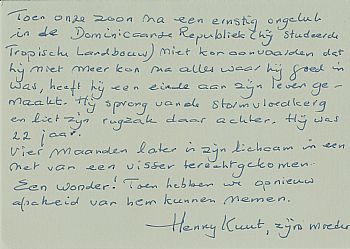 Toen onze zoon na een ernstig ongeluk
in de Dominicaanse Republiek (hij studeerde
Tropische Landbouw) niet kon aanvaarden dat
hij niet meer kon na alles waar hij goed in
was, heeft hij een einde aan zijn leven ge-
maakt. Hij sprong van de stormvloedkering
en liet zijn rugzak daar achter. Hij was
22 jaar.
Vier maanden later is zijn lichaam in een
net van een visser terechtgekomen.
Een wonder! Toen hebben we opnieuw
afscheid van hem kunnen nemen.
Henny, zijn moeder